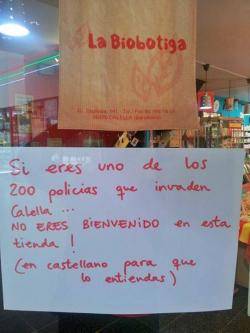 La Biobotiga
CALELLA
Si eres uno de los
200 policías que invaden
Calella ...
NO ERES BIENVENIDO en esta
tienda !
(en castellano para que
lo entiendas)